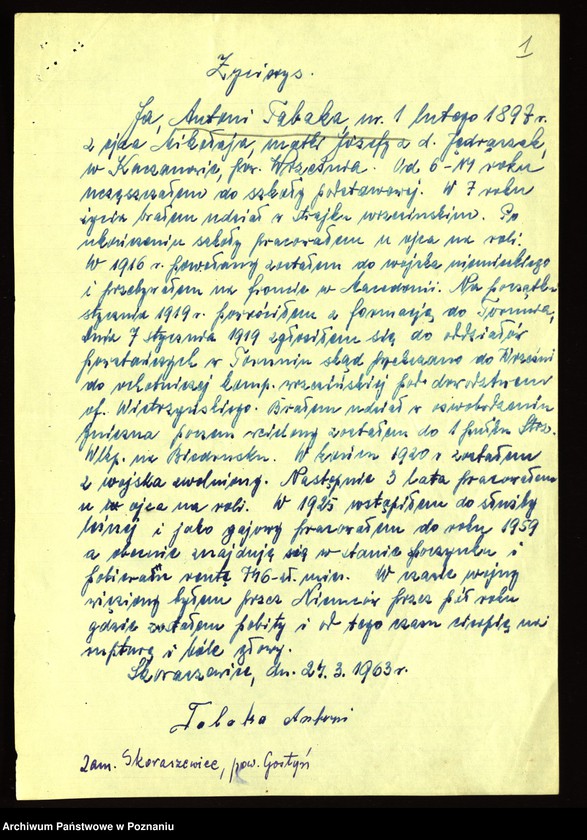 1
Życiorys.
Ja, Antoni Tabaka, ur. 1 lutego 1897 r.
z ojca Mikołaja, matki Józefy z d. Jędraszak,
w Kaczanowie, pow. Września. Od 6-14 roku
uczęszczałem do szkoły podstawowej. W 7 roku
życia brałem udział w strajku wrzesińskim. Po
ukończeniu szkoły pracowałem u ojca na roli.
W 1916 r. powołany zostałem do wojska niemieckiego
i przebywałem na froncie w Macedonii. Na początku
stycznia 1919 r. powróciłem z formacją do Torunia,
dnia 7 stycznia 1919 zgłosiłem się do oddziałów
powstańczych w Toruniu skąd przekazano do Wrześni
do ochotniczej komp. wrzesińskiej pod dowództwem
of. Wietrzyńskiego. Brałem udział w oswobodzeniu
Gniezna poczem wcielony zostałem do 1 pułku Strz.
Wlkp. na Biedrusku. W 1920 r zostałem
z wojska zwolniony. Następnie 3 lata pracowałem
u ojca na roli. W 1925 wstąpiłem do służby
leśnej i jako gajowy pracowałem do roku 1959
a obecnie znajduję się w stanie spoczynku i
pobieram rentę 746-zł. mies. W czasie wojny
więziony byłem przez Niemców przez pół roku
gdzie zostałem pobity i od tego czasu cierpię na
rupturę i bóle głowy.
Skoraszewice, dn. 27.3.1963 r.
Tabaka Antoni
zam. Skoraszewice, pow. Gostyń
Archiwum Państwowe w Poznaniu